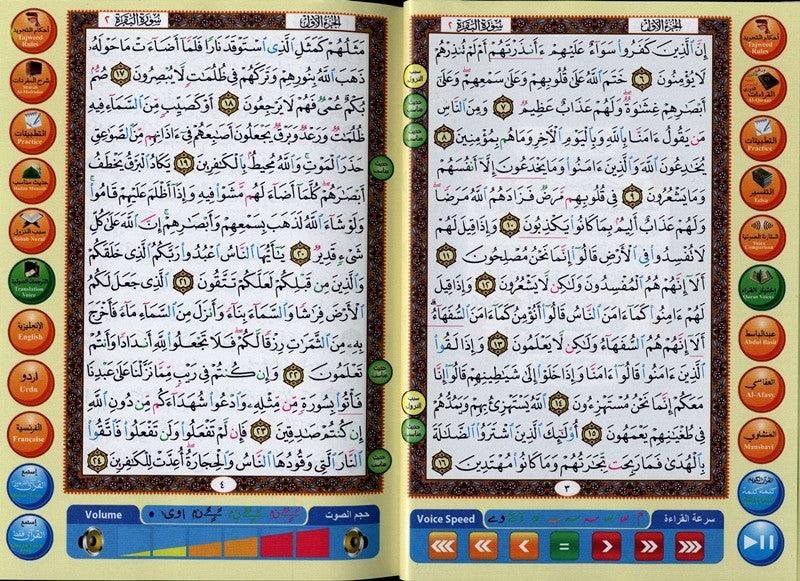 الجزء الأول
سورة البقرة ٢
إِنَّ ٱلَّذِينَ كَفَرُوا۟ سَوَآءٌ عَلَيْهِمْ ءَأَنذَرْتَهُمْ أَمْ لَمْ تُنذِرْهُمْ
لَا يُؤْمِنُونَ ٦ خَتَمَ ٱللَّهُ عَلَىٰ قُلُوبِهِمْ وَعَلَىٰ سَمْعِهِمْ ۖ وَعَلَىٰٓ
أَبْصَٰرِهِمْ غِشَٰوَةٌ ۖ وَلَهُمْ عَذَابٌ عَظِيمٌ ٧ وَمِنَ ٱلنَّاسِ
مَن يَقُولُ ءَامَنَّا بِٱللَّهِ وَبِٱلْيَوْمِ ٱلْـَٔاخِرِ وَمَا هُم بِمُؤْمِنِينَ ٨
يُخَٰدِعُونَ ٱللَّهَ وَٱلَّذِينَ ءَامَنُوا۟ وَمَا يَخْدَعُونَ إِلَّآ أَنفُسَهُمْ
وَمَا يَشْعُرُونَ ٩ فِى قُلُوبِهِم مَّرَضٌ فَزَادَهُمُ ٱللَّهُ مَرَضًا ۖ
وَلَهُمْ عَذَابٌ أَلِيمٌۢ بِمَا كَانُوا۟ يَكْذِبُونَ ١٠ وَإِذَا قِيلَ لَهُمْ
لَا تُفْسِدُوا۟ فِى ٱلْأَرْضِ قَالُوٓا۟ إِنَّمَا نَحْنُ مُصْلِحُونَ ١١
أَلَآ إِنَّهُمْ هُمُ ٱلْمُفْسِدُونَ وَلَٰكِن لَّا يَشْعُرُونَ ١٢ وَإِذَا قِيلَ
لَهُمْ ءَامِنُوا۟ كَمَآ ءَامَنَ ٱلنَّاسُ قَالُوٓا۟ أَنُؤْمِنُ كَمَآ ءَامَنَ ٱلسُّفَهَآءُ ۗ
أَلَآ إِنَّهُمْ هُمُ ٱلسُّفَهَآءُ وَلَٰكِن لَّا يَعْلَمُونَ ١٣ وَإِذَا لَقُوا۟
ٱلَّذِينَ ءَامَنُوا۟ قَالُوٓا۟ ءَامَنَّا وَإِذَا خَلَوْا۟ إِلَىٰ شَيَٰطِينِهِمْ قَالُوٓا۟ إِنَّا
مَعَكُمْ إِنَّمَا نَحْنُ مُسْتَهْزِءُونَ ١٤ ٱللَّهُ يَسْتَهْزِئُ بِهِمْ وَيَمُدُّهُمْ
فِى طُغْيَٰنِهِمْ يَعْمَهُونَ ١٥ أُو۟لَٰٓئِكَ ٱلَّذِينَ ٱشْتَرَوُا۟ ٱلضَّلَٰلَةَ
بِٱلْهُدَىٰ فَمَا رَبِحَت تِّجَٰرَتُهُمْ وَمَا كَانُوا۟ مُهْتَدِينَ ١٦
٣
سرعة القراءة
Voice Speed
أحكام التجويد
Tajweed
Rules
القراءات
الدوري
Al-Qaraat
التطبيقات
Practice
التفسير
Tafsir
المقارنة الصوتية
Voice
Comparison
إختيار القراء
Quran Voices
عبدالباسط
Abdul Basit
العفاسي
Al-Afasy
المنشاوي
Manshavi
القرآن الكريم
كلمة كلمة
الجزء الأول
سورة البقرة ٢
مَثَلُهُمْ كَمَثَلِ ٱلَّذِى ٱسْتَوْقَدَ نَارًا فَلَمَّآ أَضَآءَتْ مَا حَوْلَهُۥ
ذَهَبَ ٱللَّهُ بِنُورِهِمْ وَتَرَكَهُمْ فِى ظُلُمَٰتٍ لَّا يُبْصِرُونَ ١٧ صُمٌّۢ
بُكْمٌ عُمْىٌ فَهُمْ لَا يَرْجِعُونَ ١٨ أَوْ كَصَيِّبٍ مِّنَ ٱلسَّمَآءِ فِيهِ
ظُلُمَٰتٌ وَرَعْدٌ وَبَرْقٌ يَجْعَلُونَ أَصَٰبِعَهُمْ فِىٓ ءَاذَانِهِم مِّنَ ٱلصَّوَٰعِقِ
حَذَرَ ٱلْمَوْتِ ۚ وَٱللَّهُ مُحِيطٌۢ بِٱلْكَٰفِرِينَ ١٩ يَكَادُ ٱلْبَرْقُ يَخْطَفُ
أَبْصَٰرَهُمْ ۖ كُلَّمَآ أَضَآءَ لَهُم مَّشَوْا۟ فِيهِ وَإِذَآ أَظْلَمَ عَلَيْهِمْ قَامُوا۟ ۚ
وَلَوْ شَآءَ ٱللَّهُ لَذَهَبَ بِسَمْعِهِمْ وَأَبْصَٰرِهِمْ ۚ إِنَّ ٱللَّهَ عَلَىٰ كُلِّ
شَىْءٍ قَدِيرٌ ٢٠ يَٰٓأَيُّهَا ٱلنَّاسُ ٱعْبُدُوا۟ رَبَّكُمُ ٱلَّذِى خَلَقَكُمْ
وَٱلَّذِينَ مِن قَبْلِكُمْ لَعَلَّكُمْ تَتَّقُونَ ٢١ ٱلَّذِى جَعَلَ لَكُمُ
ٱلْأَرْضَ فِرَٰشًا وَٱلسَّمَآءَ بِنَآءً وَأَنزَلَ مِنَ ٱلسَّمَآءِ مَآءً فَأَخْرَجَ
بِهِۦ مِنَ ٱلثَّمَرَٰتِ رِزْقًا لَّكُمْ ۖ فَلَا تَجْعَلُوا۟ لِلَّهِ أَندَادًا وَأَنتُمْ
تَعْلَمُونَ ٢٢ وَإِن كُنتُمْ فِى رَيْبٍ مِّمَّا نَزَّلْنَا عَلَىٰ عَبْدِنَا
فَأْتُوا۟ بِسُورَةٍ مِّن مِّثْلِهِۦ وَٱدْعُوا۟ شُهَدَآءَكُم مِّن دُونِ ٱللَّهِ
إِن كُنتُمْ صَٰدِقِينَ ٢٣ فَإِن لَّمْ تَفْعَلُوا۟ وَلَن تَفْعَلُوا۟ فَٱتَّقُوا۟
ٱلنَّارَ ٱلَّتِى وَقُودُهَا ٱلنَّاسُ وَٱلْحِجَارَةُ ۖ أُعِدَّتْ لِلْكَٰفِرِينَ ٢٤
٤
حجم الصوت
Volume
أحكام التجويد
Tajweed
Rules
شرح المفردات
Sharah
Al-Mufradat
التطبيقات
Practice
حديث مناسب
Hadith Munasib
سبب النزول
Sabab Nuzul
الترجمة الصوتية
Translation
Voice
الإنجليزية
English
أردو
Urdu
الفرنسية
Française
إستمع
إستمع
القرآن فقط